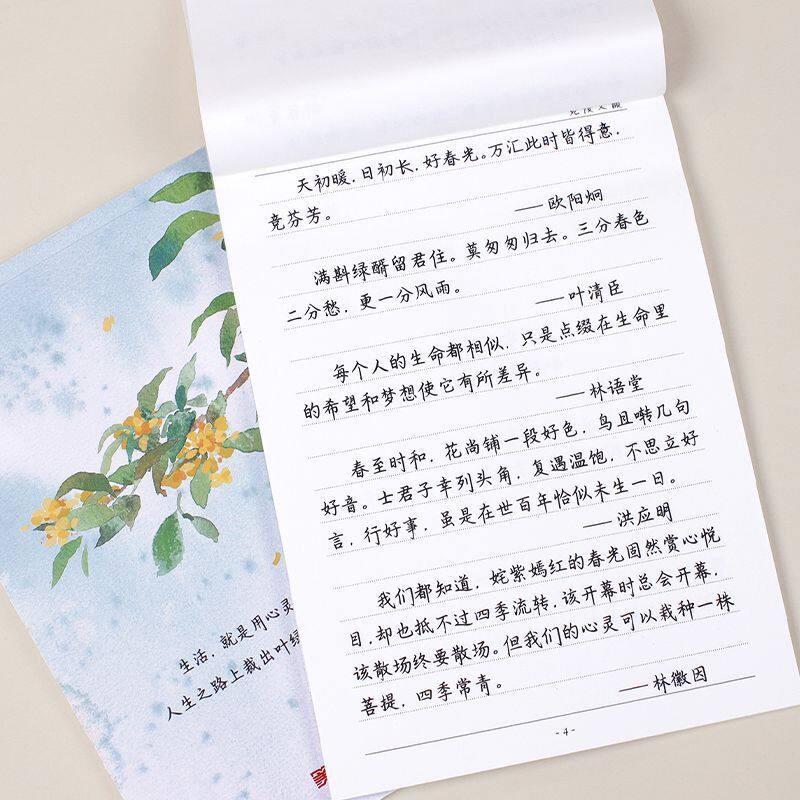 天初暖，日初长，好春光。万汇此时皆得意，
竞芬芳。
——欧阳炯
满斟绿醑留君住。莫匆匆归去。三分春色
二分愁，更一分风雨。
——叶清臣
每个人的生命都相似，只是点缀在生命里
的希望和梦想使它有所差异。
——林语堂
春至时和，花尚铺一段好色，鸟且啭几句
好音。士君子幸列头角，复遇温饱，不思立好
言，行好事，虽是在世百年恰似未生一日。
——洪应明
我们都知道，姹紫嫣红的春光固然赏心悦
目，却也抵不过四季流转，该开幕时总会开幕，
该散场终要散场。但我们的心灵可以栽种一株
菩提，四季常青。
——林徽因
-4-
生活，就是用心灵
人生之路上栽出叶绿